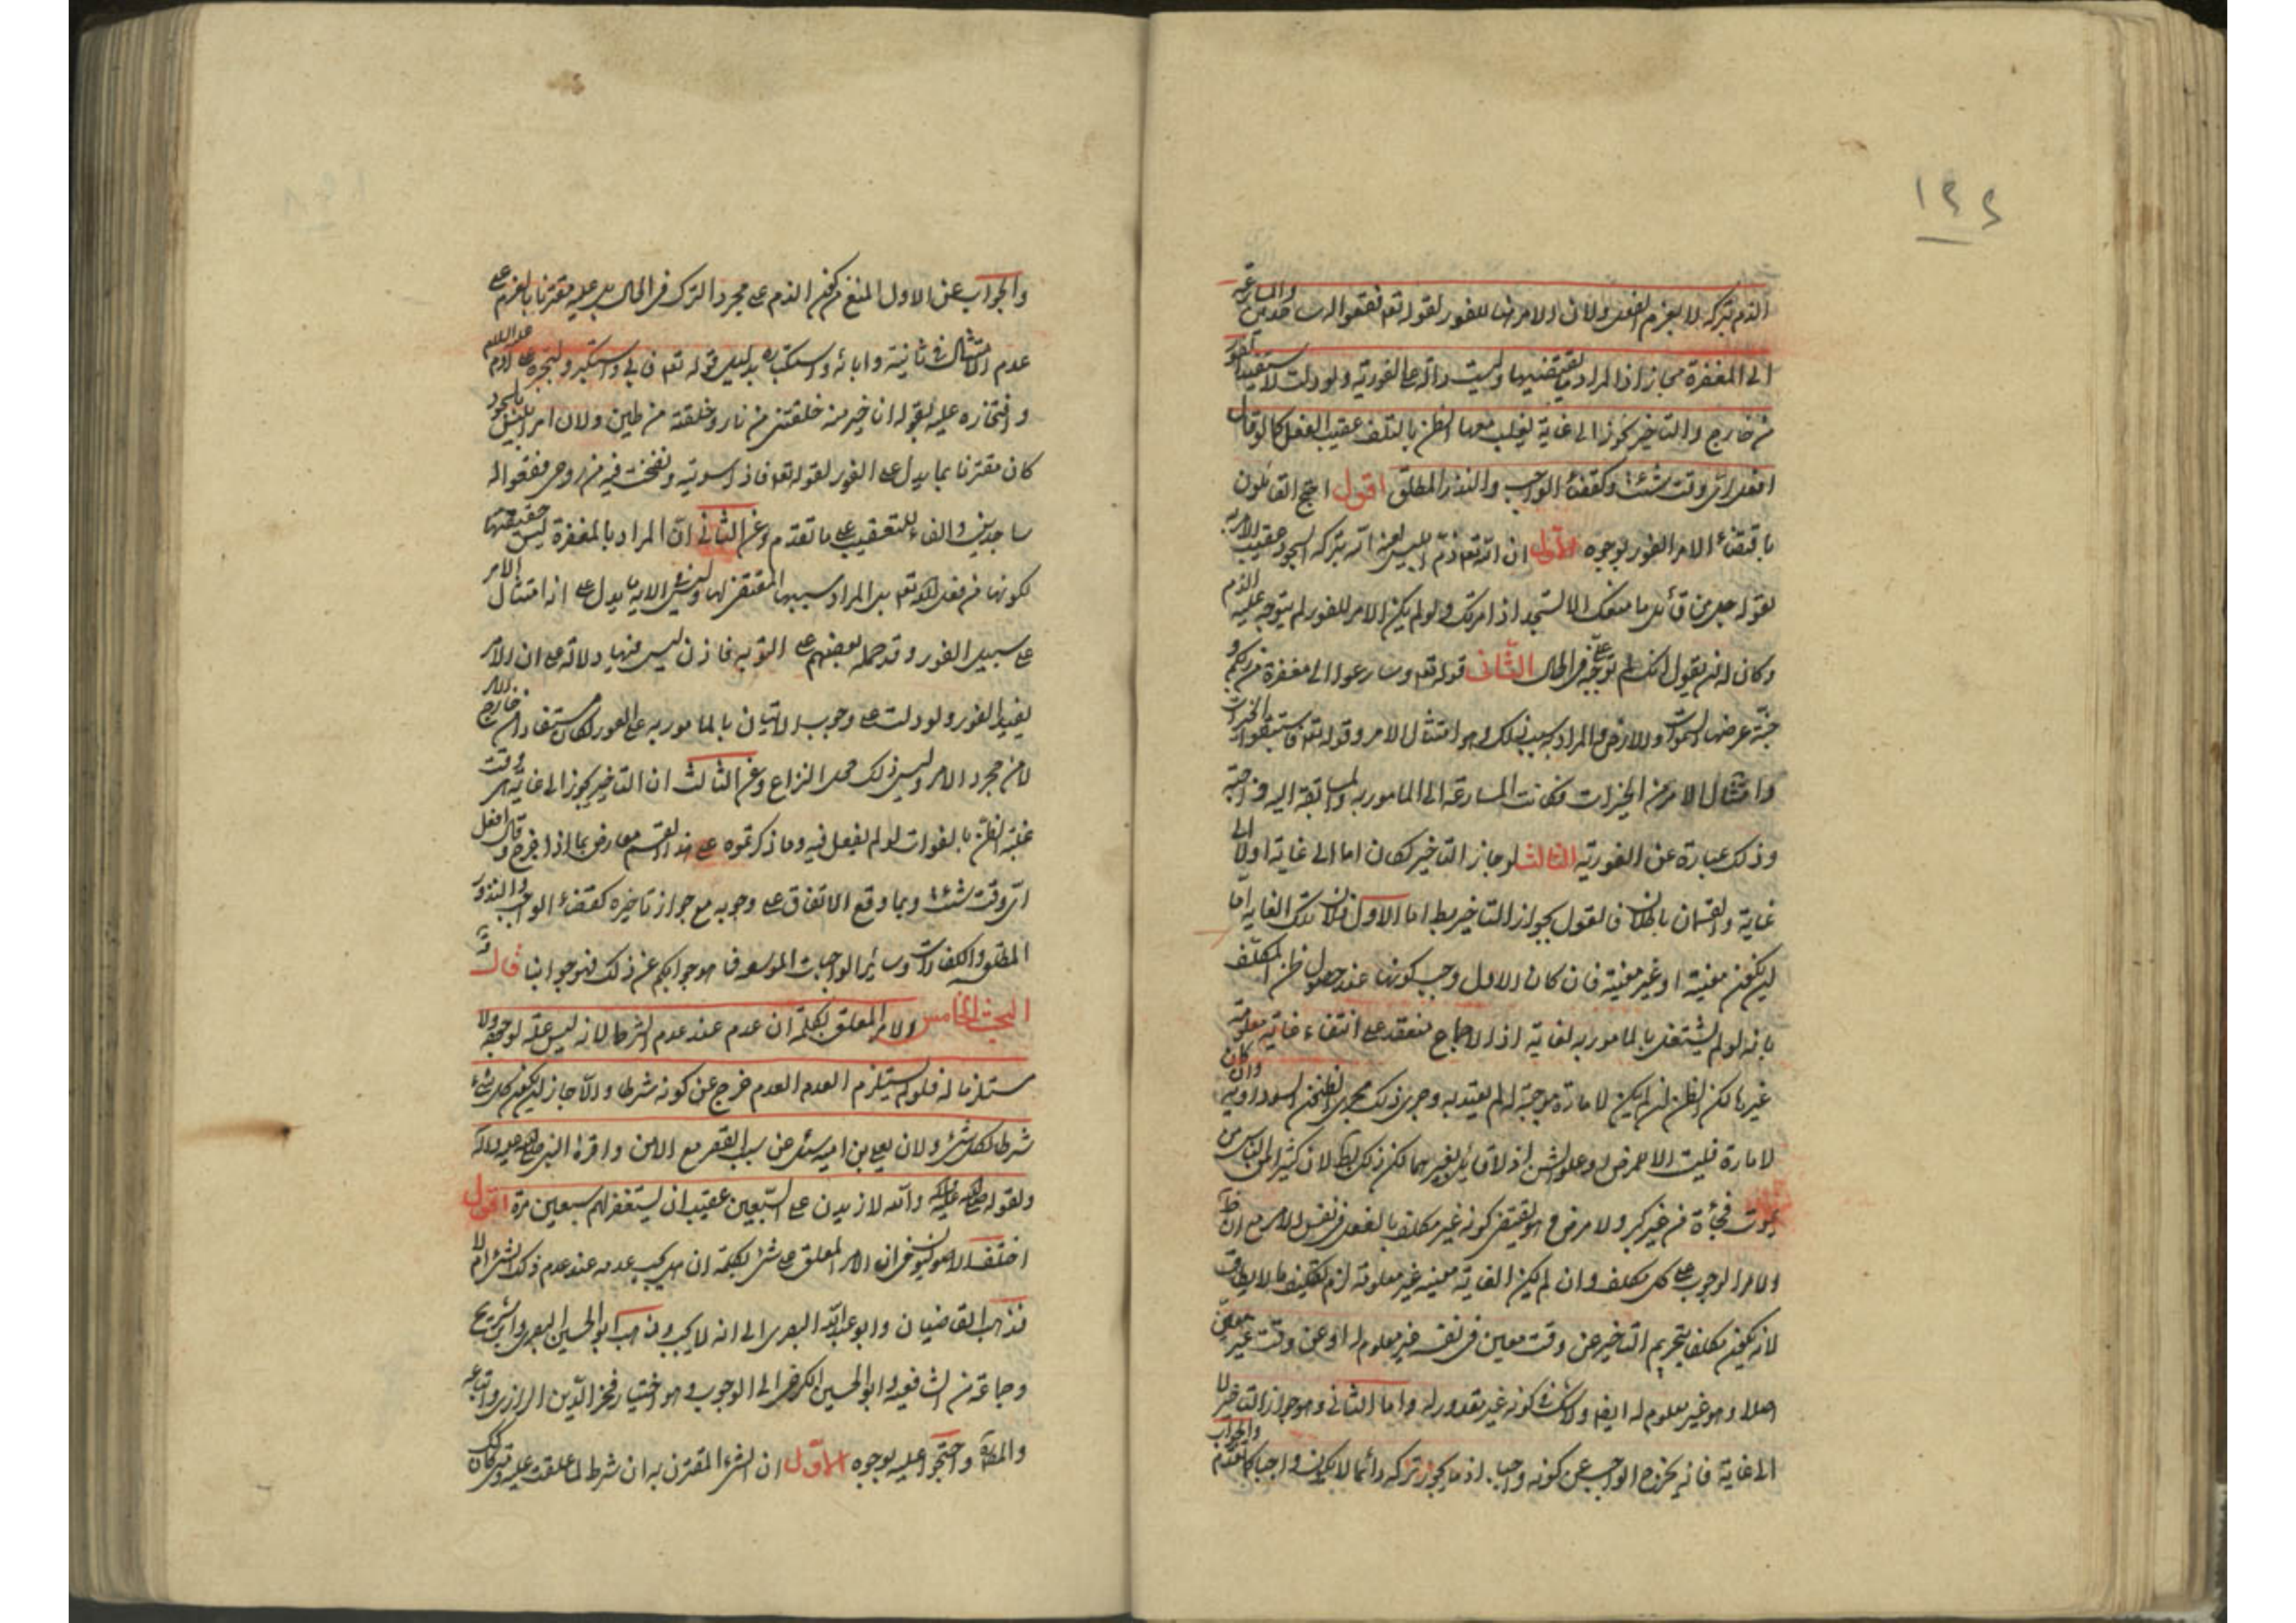 ١٤٤
الذم بتركه لا بعزم الفعل ولان الامر هنا للفور لقوله تعالى فقعوا له ساجدين والمسارعة
الى المغفرة مجاز اذ المراد ما يقتضيها وليست دالة على الفورية ولو دلت لاستفيد الفور
من خارج والتأخير يجوز الى غاية يغلب معها الظن بالتلف عقيب الفعل كما لو قال
افعل اي وقت شئت وكقضاء الواجب والنذر المطلق اقول احتج القائلون
باقتضاء الامر الفور بوجوه الاول ان الله تعالى ذم ابليس لعنه الله بتركه السجود عقيب الامر به
لقوله جل من قائل ما منعك الا تسجد اذ امرتك ولو لم يكن الامر للفور لم يتوجه عليه الذم
وكان له ان يقول انك لم توجبه علي في الحال الثاني قوله تعالى وسارعوا الى مغفرة من ربكم و
جنة عرضها السموات والارض والمراد سبب ذلك وهو امتثال الامر وقوله تعالى فاستبقوا الخيرات
وامتثال الامر من الخيرات فكانت المسارعة الى المامور به والمسابقة اليه واجبة
وذلك عبارة عن الفورية الثالث لو جاز التاخير لكان اما الى غاية او لا الى
غاية والقسمان باطلان فالقول بجواز التاخير بط اما الاول فلان تلك الغاية اما
ان يكون معينة او غير معينة فان كان الاول وجب كونها عند حصول ظن المكلف
بانه لو لم يشتغل بالمامور به لفاته اذ الاجماع منعقد على انتفاء غاية معلومة
غيرها لكن الظن ان لم يكن لامارة موجبة له لم يعتد به وجرى ذلك مجرى الظن السوداوي وان كان
لامارة فليست الا المرض او علو السن اذ لا قائل بغيرهما لكن ذلك بط لان كثيرا من الناس من
يموت فجأة من غير كبر ولا مرض وهو يقتضي كونه غير مكلف بالفعل في نفس الامر مع ان ظ
الامر الوجوب على كل مكلف وان لم يكن الغاية معينة غير معلومة لزم تكليف ما لا يطاق
لانه يكون مكلفا بتحريم التاخير عن وقت معين في نفسه غير معلوم له او عن وقت غير معين
اصلا وهو غير معلوم له ايضا ولا شك في كونه غير مقدور له واما الثاني وهو جواز التاخير لا
الى غاية فانه يخرج الواجب عن كونه واجبا اذ ما يجوز تركه دائما لا يكون واجبا كما تقدم والجواب
والجواب عن الاول المنع من كون الذم على مجرد الترك في الحال بل عليه مقترنا بالعزم على
عدم الامتثال في ثانية وابائه واستكباره بدليل قوله تعالى فابى واستكبر ولتجبره على ادم عليه السلام
وافتخاره عليه بقوله انا خير منه خلقتني من نار وخلقته من طين ولان امر ابليس بالسجود
كان مقترنا بما يدل على الفور لقوله تعالى فاذا سويته ونفخت فيه من روحي فقعوا له
ساجدين والفاء للتعقيب على ما تقدم وعن الثاني ان المراد بالمغفرة ليس حقيقتها
لكونها من فعل الله تعالى بل المراد سببها المقتضي لها وليس في الاية ما يدل على انه امتثال الامر
على سبيل الفور وقد حمله بعضهم على التوبة فاذن ليس فيها دلالة على ان الامر
يفيد الفور ولو دلت على وجوب الاتيان بالمامور به على الفور لكان مستفادا من خارج الامر
لا من مجرد الامر وليس ذلك محل النزاع وعن الثالث ان التاخير يجوز الى غاية هي وقت
غلبة الظن بالفوات لو لم يفعل فيه وما ذكرتموه على هذا القسم معارض بما اذا فرض وقال افعل
اي وقت شئت وبما وقع الاتفاق على وجوبه مع جواز تاخيره كقضاء الواجب والنذور
المطلقة والكفارات وسائر الواجبات الموسعة فما هو جوابكم عن ذلك فهو جوابنا قال
البحث الخامس الامر المعلق بكلمة ان عدم عند عدم الشرط لانه ليس علة لوجوده ولا
مستلزما له فلو لم يستلزم العدم العدم خرج عن كونه شرطا والا جاز ان يكون كل شيء
شرطا لكل شيء ولان يعلى بن امية سئل عن سبب القصر مع الامن واقره النبي صلى الله عليه واله
ولقوله صلى الله عليه واله والله لازيدن على السبعين عقيب ان يستغفر لهم سبعين مرة اقول
اختلف الاصوليون في ان الامر المعلق على شيء بكلمة ان هل يجب عدمه عند عدم ذلك الشيء ام لا
فذهب القاضيان وابو عبد الله البصري الى انه لا يجب وذهب ابو الحسين البصري وابن شريح
وجماعة من الشافعية وابو الحسين الكرخي الى الوجوب وهو اختيار فخر الدين الرازي واتباعه
والمصنف واحتجوا عليه بوجوه الاول ان الشيء المقترن به ان شرط لما علقت عليه ومتى كان كذلك